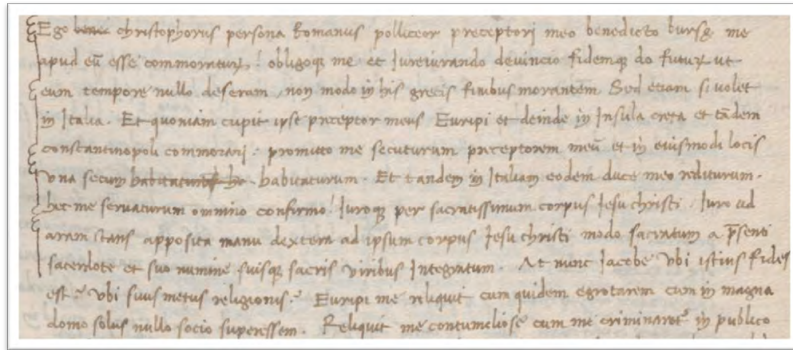 Ego benei christophorus persona Romanus polliceor preceptori meo benedicto bursę me
apud eū esse commoraturū! obligoqȝ me et Jureiurando devincio fidemqȝ do futurū ut
eum tempore nullo deseram, non modo in his grecis finibus morantem Sed etiam si volet
in Italia. Et quoniam cupit ipse preceptor meus Euripi et deinde in Insula creta et tādem
constantinopoli commorari: promitto me secuturum preceptorem meū et in eiusmodi locis
una secum habitaturum. Et tandem in Italiam eodem duce meo rediturum.
hec me servaturum omnino confirmo! Juroqȝ per sacratissimum corpus Jesu christi. Juro ad
aram stans apposita manu dextera ad ipsum corpus Jesu christi modo sacratum a p̄senti
sacerdote et suo numine suisqȝ sacris viribus Integratum. At nunc Jacobe vbi istius fides
est? vbi suus metus religionis? Euripi me reliquit cum quidem egrotarem cum in magna
domo solus nullo socio superessem. Reliquit me contumeliose cum me criminaret in publico